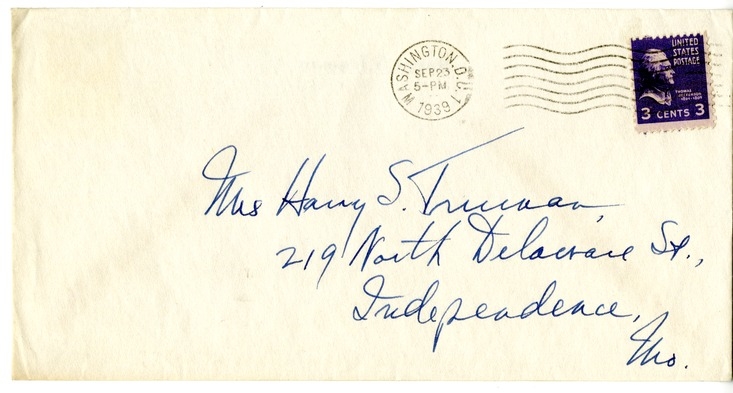 WASHINGTON, D.C. 1
SEP 23
5-PM
1939
UNITED
STATES
POSTAGE
THOMAS
JEFFERSON
3 CENTS 3
Mrs Harry S. Truman,
219 North Delaware St.,
Independence,
Mo.